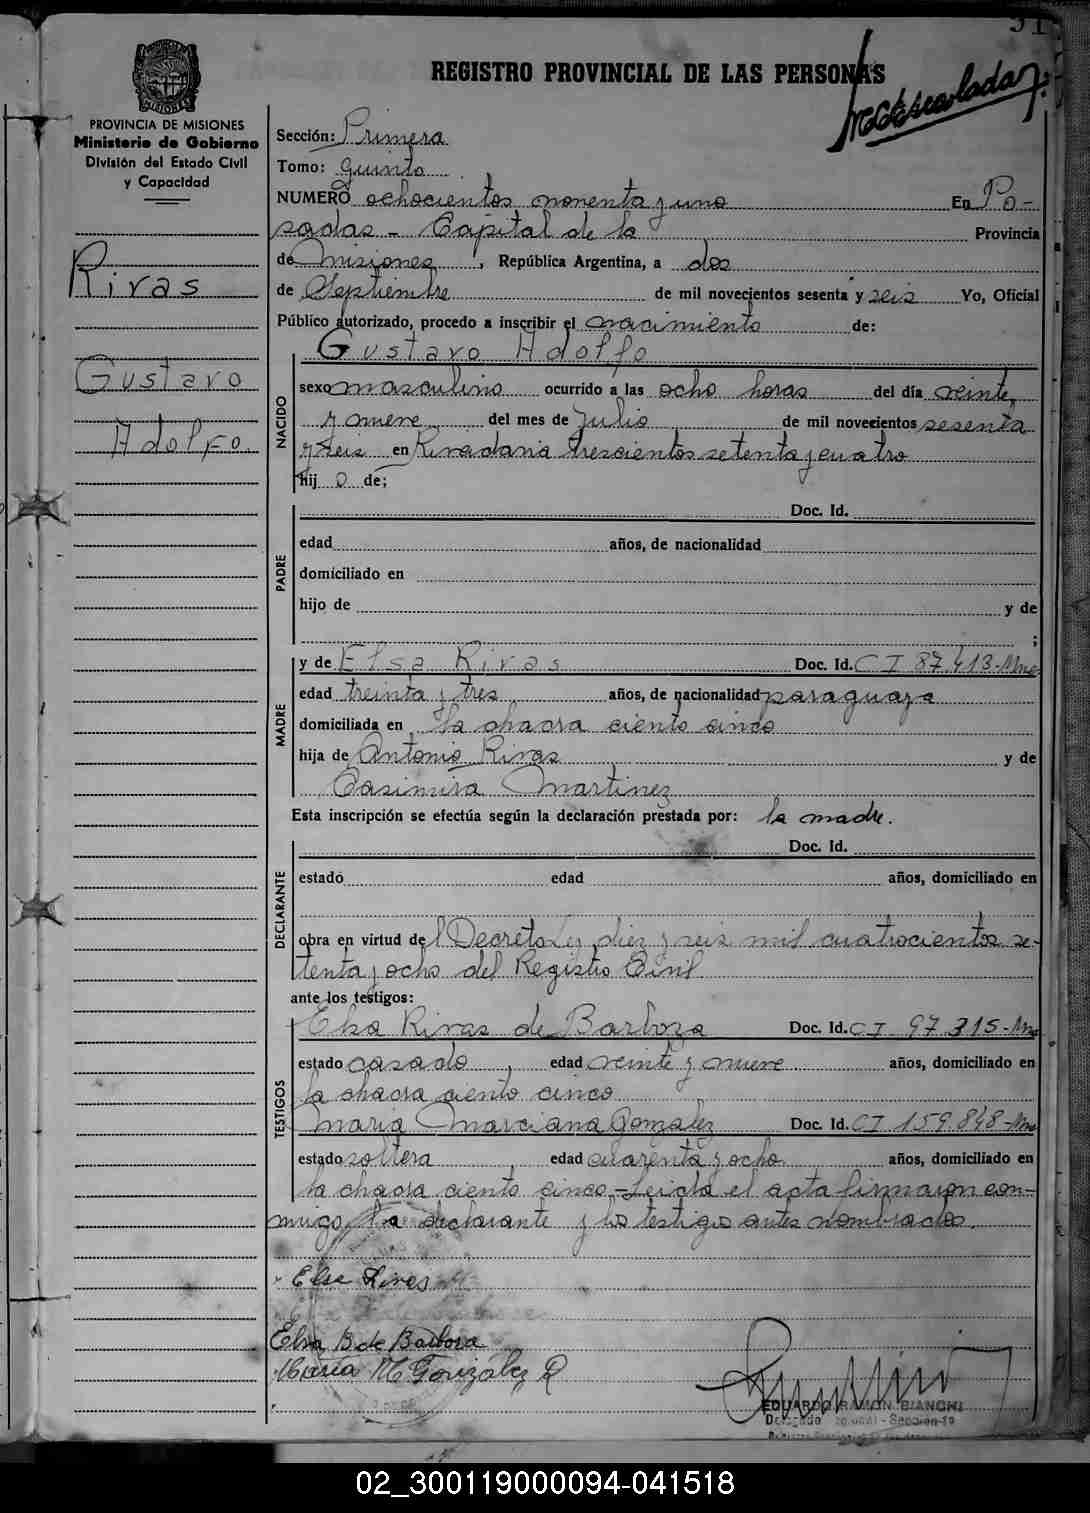 REGISTRO PROVINCIAL DE LAS PERSONAS
PROVINCIA DE MISIONES
Ministerio de Gobierno
División del Estado Civil
y Capacidad
Rivas
Gustavo
Adolfo.
Sección: Primera
Tomo: quinto
NUMERO ochocientos noventa y uno En Po-
sadas - Capital de la Provincia
de Misiones, República Argentina, a dos
de Septiembre de mil novecientos sesenta y seis Yo, Oficial
Público autorizado, procedo a inscribir el nacimiento de:
Gustavo Adolfo
NACIDO
sexo masculino ocurrido a las ocho horas del día veinte
y nueve del mes de Julio de mil novecientos sesenta
y seis en Rivadavia trescientos setenta y cuatro
hij o de;
PADRE
Doc. Id.
edad años, de nacionalidad
domiciliado en
hijo de y de
;
MADRE
y de Elsa Rivas Doc. Id. CI 87.413-Mnes
edad treinta y tres años, de nacionalidad paraguaya
domiciliada en la chacra ciento cinco
hija de Antonio Rivas y de
Casimira Martinez
Esta inscripción se efectúa según la declaración prestada por: la madre.
DECLARANTE
Doc. Id.
estado edad años, domiciliado en
obra en virtud del Decreto Ley diez y seis mil cuatrocientos se-
tenta y ocho del Registro Civil
ante los testigos:
TESTIGOS
Elsa Rivas de Barboza Doc. Id. CI 97 315-Mns
estado casado, edad veinte y nueve años, domiciliado en
la chacra ciento cinco
Maria Marciana Gonzalez Doc. Id. CI 159.848-Mns
estado soltera, edad cuarenta y ocho años, domiciliado en
la chacra ciento cinco - Leida el acta firmaron con-
migo, la declarante y los testigos antes nombrados.
Elsa Rivas
Elsa B de Barbosa
Maria M Gonzalez R
EDUARDO RAMON BIANCHI
02_300119000094-041518